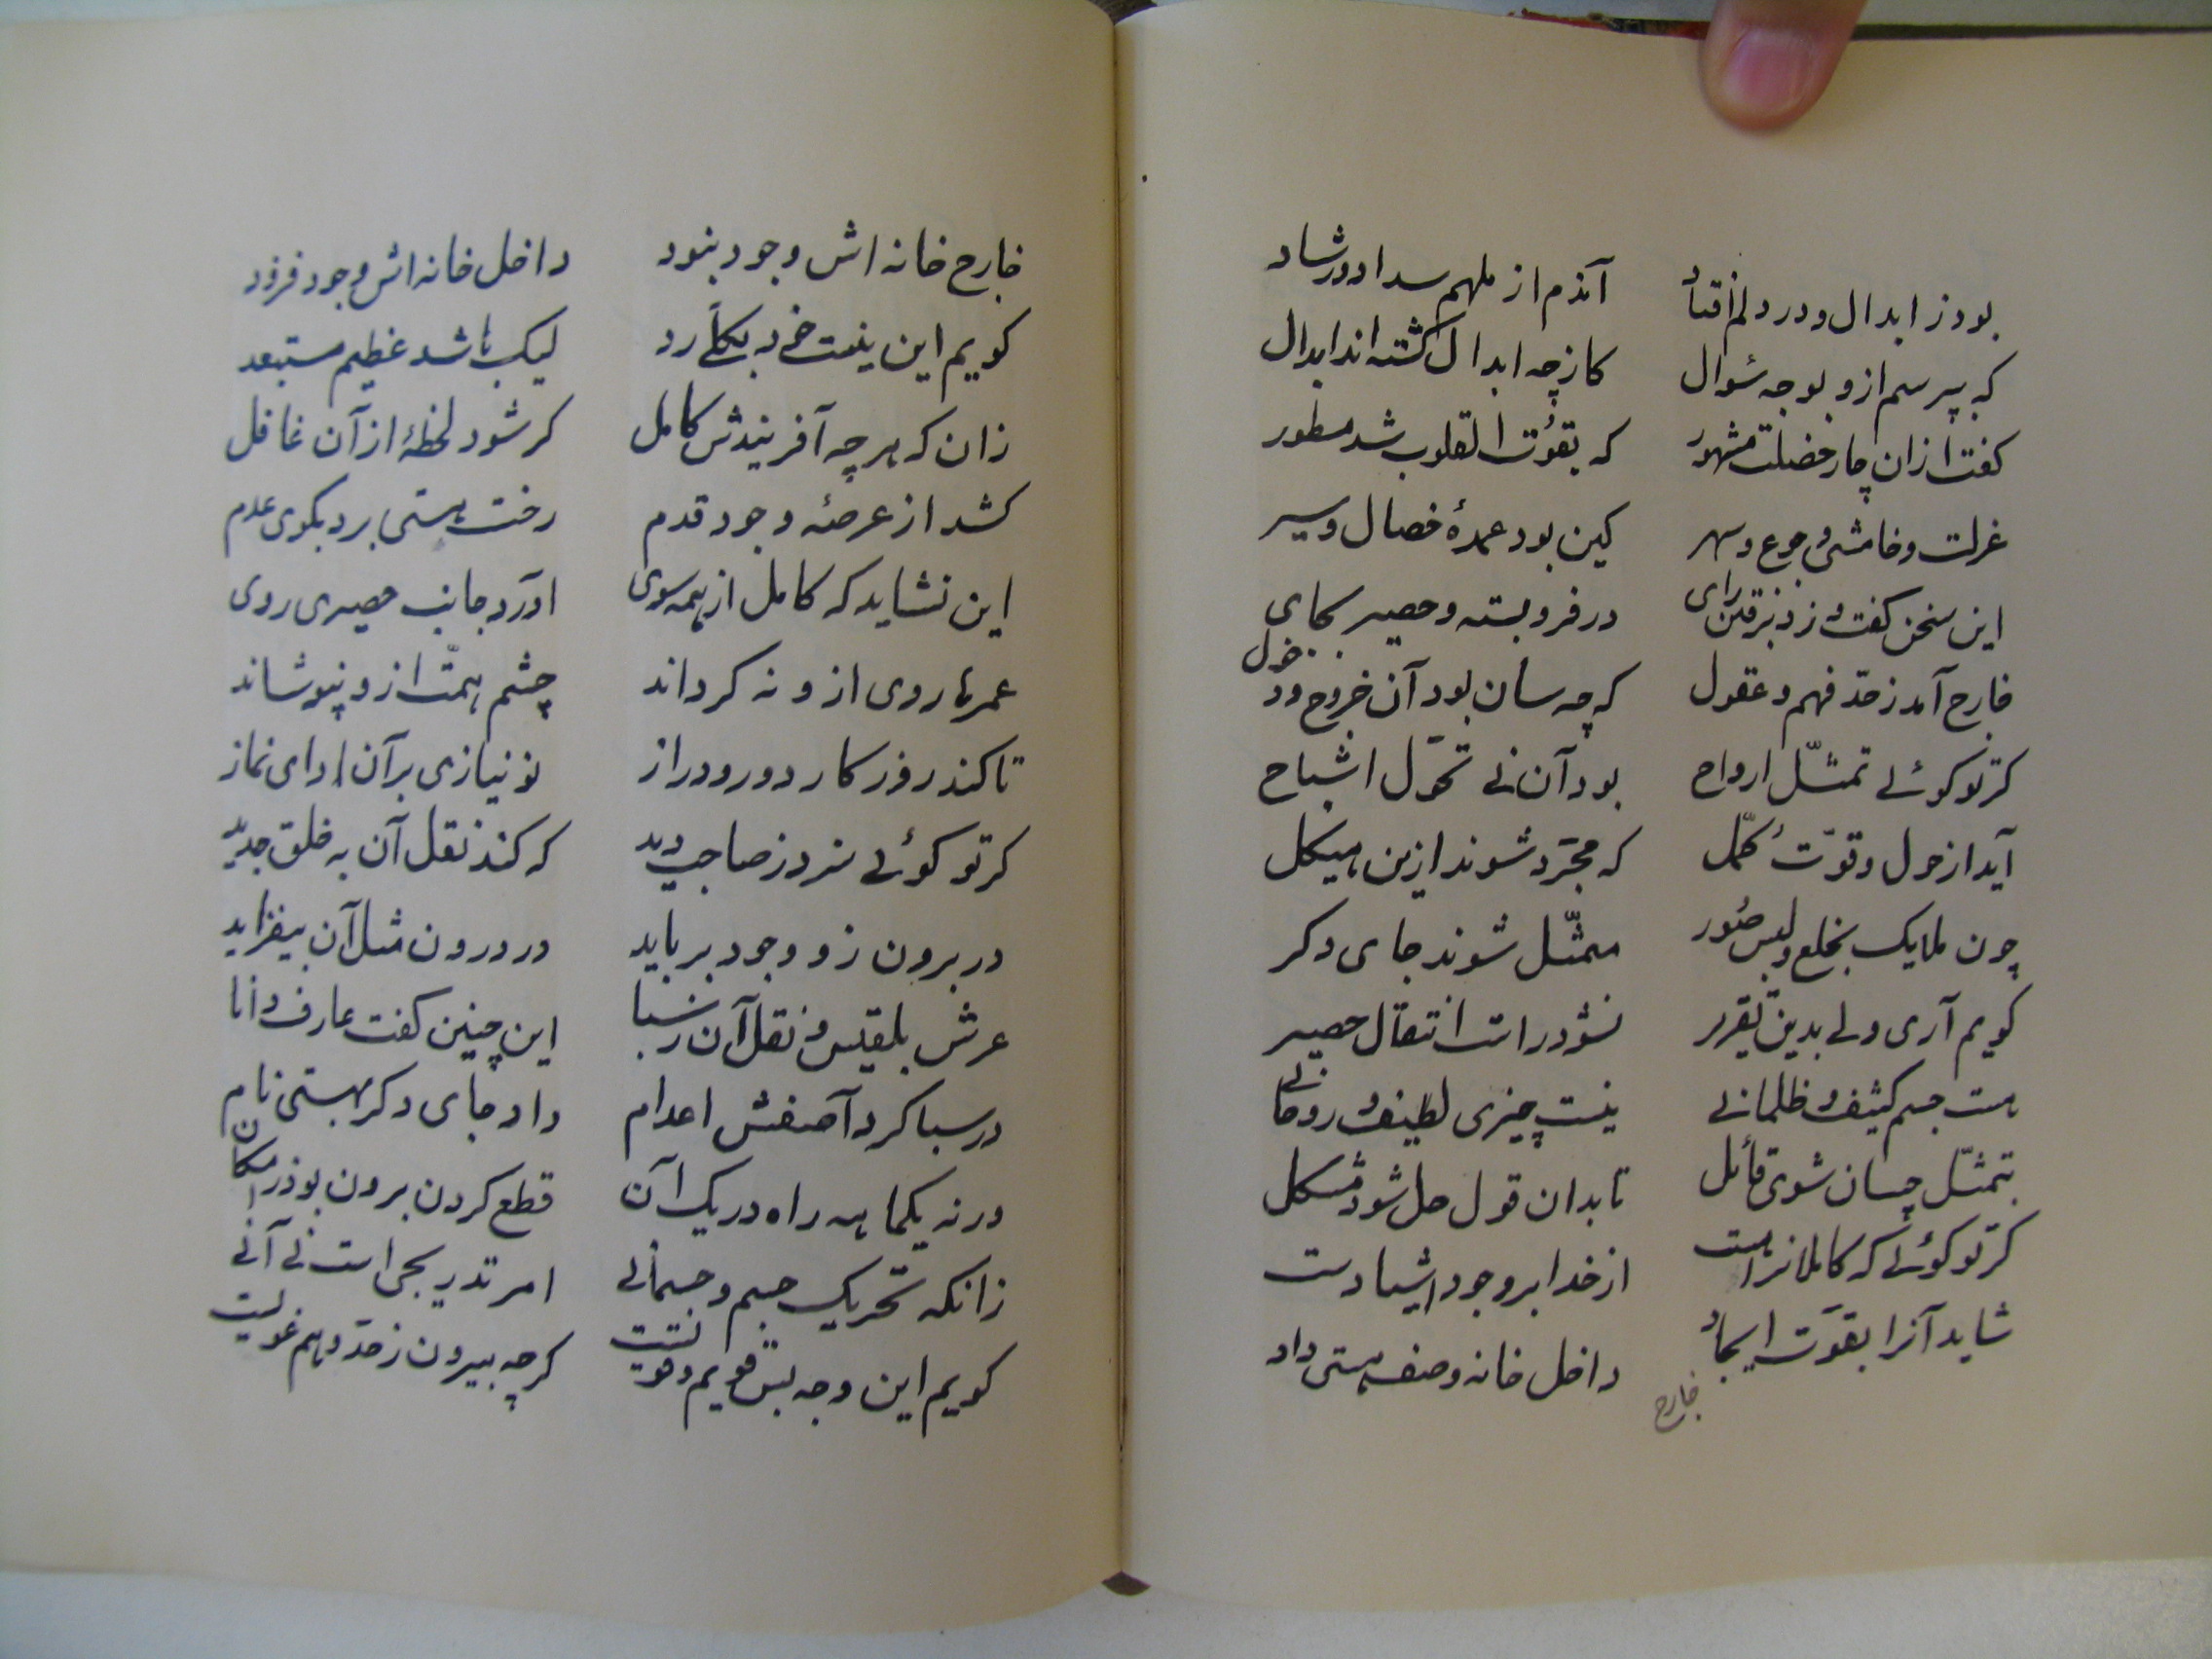 بود ز ابدال و در دلم افتاد آندم از ملهم سداد و رشاد
که بپرسم ازو بوجه سؤال کاز چه ابدال گشته‌اند ابدال
کفت ازان چار خصلت مشهور که بقوت القلوب شد مسطور
عزلت و خامشی و جوع و سهر کین بود عمدهٔ خصال و سیر
این سخن کفت و زد برفتن رای در فرو بسته و حصیر بجای
خارج آمد ز حدّ فهم و عقول که چه سان بود آن خروج و دخول
کر تو کوئی تمثّل ارواح بود آن نی تحوّل اشباح
آید از حول و قوّت کُمّل که مجرّد شوند ازین هیکل
چون ملایک بخلع و لبس صُور متمثّل شوند جای دکر
کویم آری ولی بدین تقریر نشود راست انتقال حصیر
هست جسم کثیف و ظلمانی نیست چیزی لطیف و روحانی
بتمثّل چسان شوی قائل تا بدان قول حل شود مشکل
کر تو کوئی که کاملانرا هست از خدا بر وجود اشیا دست
شاید آنرا بقوّت ایجاد داخل خانه وصف هستی داد
خارج
خارج خانه اش وجود بنود داخل خانه اش وجود فزود
کویم این نیست خرد بکلّی رد لیک باشد عظیم مستبعد
زان که هر چه آفریندش کامل کر شود لحظهٔ از آن غافل
کشد از عرصهٔ وجود قدم رخت هستی برد بکوی عدم
این نشاید که کامل از همه سوی آورد جانب حصیری روی
عمرها روی ازو نه کرداند چشم همّت ازو نپوشاند
تا کند روزکار دور و دراز نو نیازی بر آن ادای نماز
کر تو کوئی سزد ز صاحب دید که کند نقل آن به خلق جدید
در برون زو وجود برباید در درون مثل آن بیفزاید
عرش بلقیس و نقل آن ز سبا این چنین کفت عارف دانا
در سبا کرد آصفش اعدام داد جای دکر بهستی نام
ورنه یکماهه راه در یک آن قطع کردن برون بود ز امکان
زانکه تحریک جسم و جسمانی امر تدریجی است نی آنی
کویم این وجه بس قویم و قویست کرچه بیرون ز حدّ وهم غویست